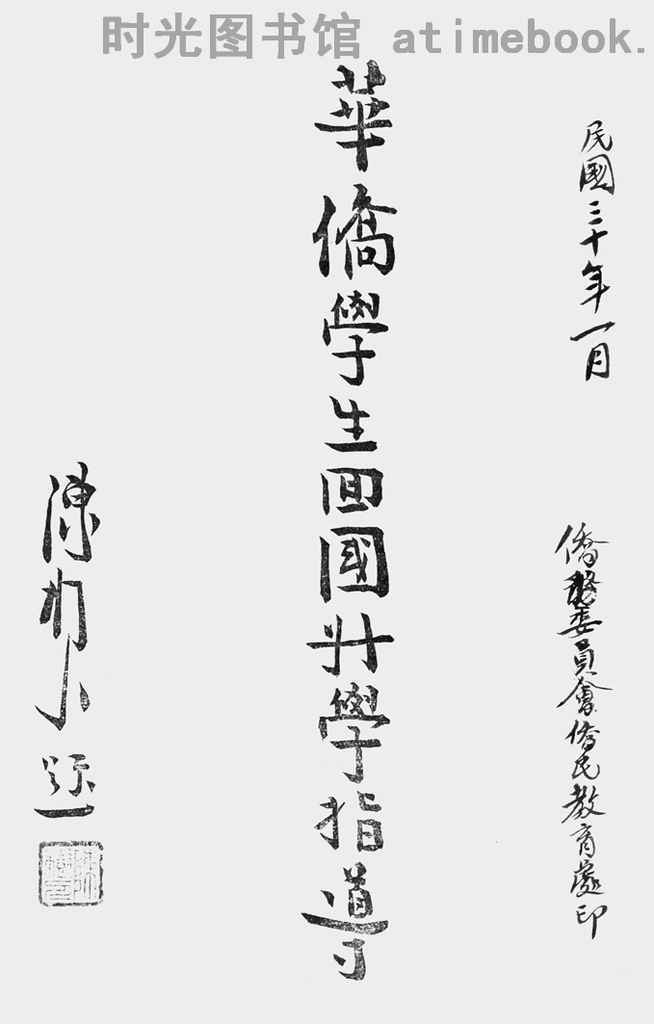 时光图书馆 atimebook.
民國三十年一月
僑務委員會僑民教育處印
華僑學生回國升學指導
陳樹人題